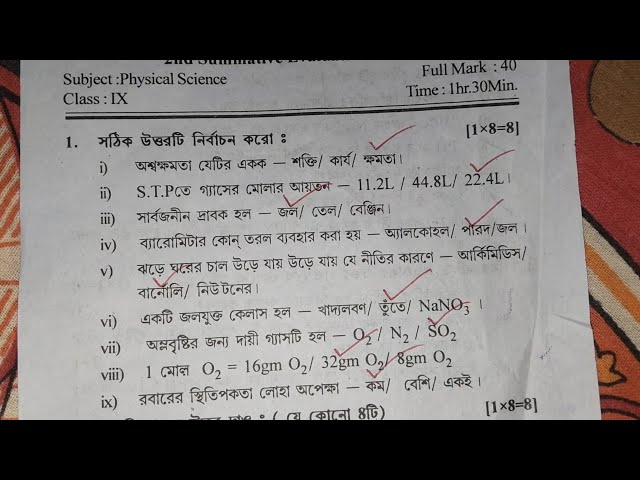 2nd Summative
Subject :Physical Science
Full Mark : 40
Class : IX
Time : 1hr.30Min.
1. সঠিক উত্তরটি নির্বাচন করো : [1×8=8]
i) অশ্বক্ষমতা যেটির একক — শক্তি/ কার্য/ ক্ষমতা।
ii) S.T.Pতে গ্যাসের মোলার আয়তন — 11.2L / 44.8L/ 22.4L।
iii) সার্বজনীন দ্রাবক হল — জল/ তেল/ বেঞ্জিন।
iv) ব্যারোমিটার কোন্ তরল ব্যবহার করা হয় — অ্যালকোহল/ পারদ/জল।
v) ঝড়ে ঘরের চাল উড়ে যায় উড়ে যায় যে নীতির কারণে — আর্কিমিডিস/
বার্নোলি/ নিউটনের।
vi) একটি জলযুক্ত কেলাস হল — খাদ্যলবণ/ তুঁতে/ NaNO₃ ।
vii) অম্লবৃষ্টির জন্য দায়ী গ্যাসটি হল — O₂ / N₂ / SO₂
viii) 1 মোল O₂ = 16gm O₂/ 32gm O₂/ 8gm O₂
ix) রবারের স্থিতিপকতা লোহা অপেক্ষা — কম/ বেশি/ একই।
( যে কোনো ৪টি) [1×8=8]